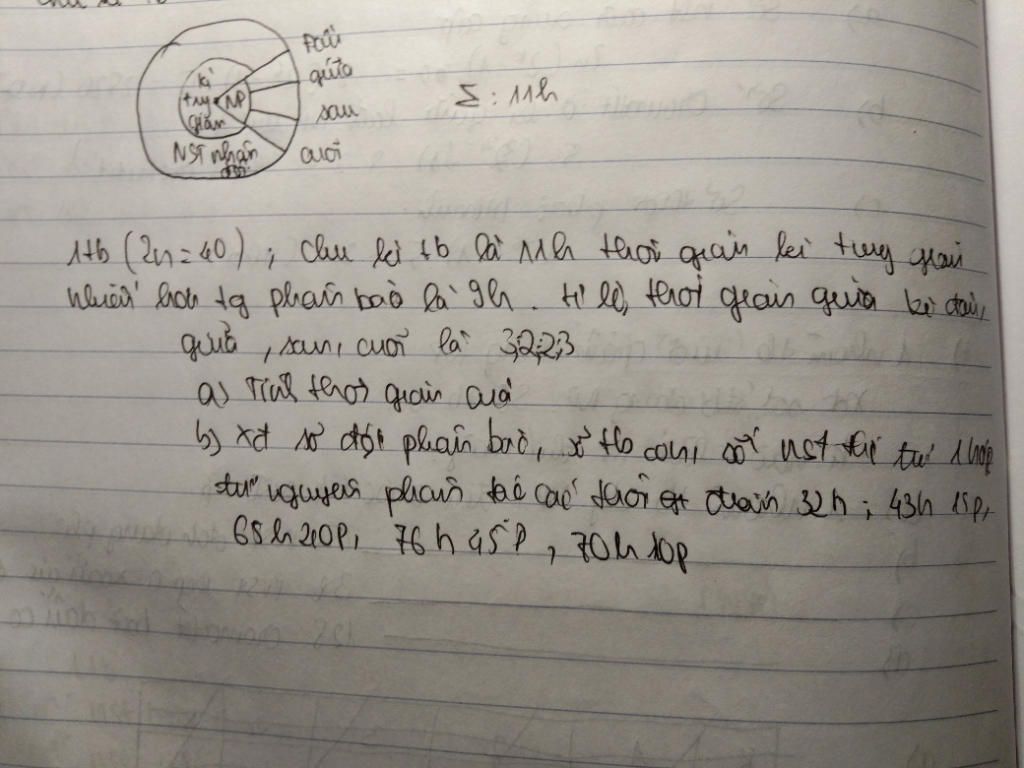 Đầu
giữa
sau
cuối
kì
trg
gian
NP
NST nhân
đôi
Σ : 11h
1tb (2n = 40) ; Chu kì tb là 11h thời gian kì trung gian
nhiều hơn tg phân bào là 9h. tỉ lệ thời gian giữa kì đầu,
giữa, sau, cuối là 3;2;2;3
a) Tính thời gian của
b) xđ số đợt phân bào, số tb con, số NST tại từ 1 hợp
tử nguyên phân các thời đoạn 32h ; 43h 15p,
65h 20p, 76h 45p, 70h 10p